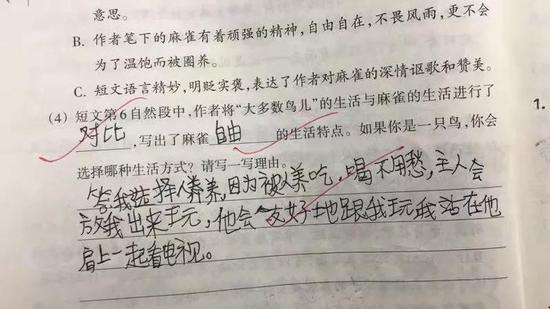 意思。
B. 作者笔下的麻雀有着顽强的精神,自由自在,不畏风雨,更不会
为了温饱而被圈养。
C. 短文语言精妙,明贬实褒,表达了作者对麻雀的深情讴歌和赞美。
(4) 短文第6自然段中,作者将“大多数鸟儿”的生活与麻雀的生活进行了
对比,写出了麻雀 自由 的生活特点。如果你是一只鸟,你会
1.
选择哪种生活方式?请写一写理由。
答我选择人养养,因为被人美吃,喝不用愁,主人会
放我出来玩,他会友好地跟我玩我站在他
肩上一起看电视。